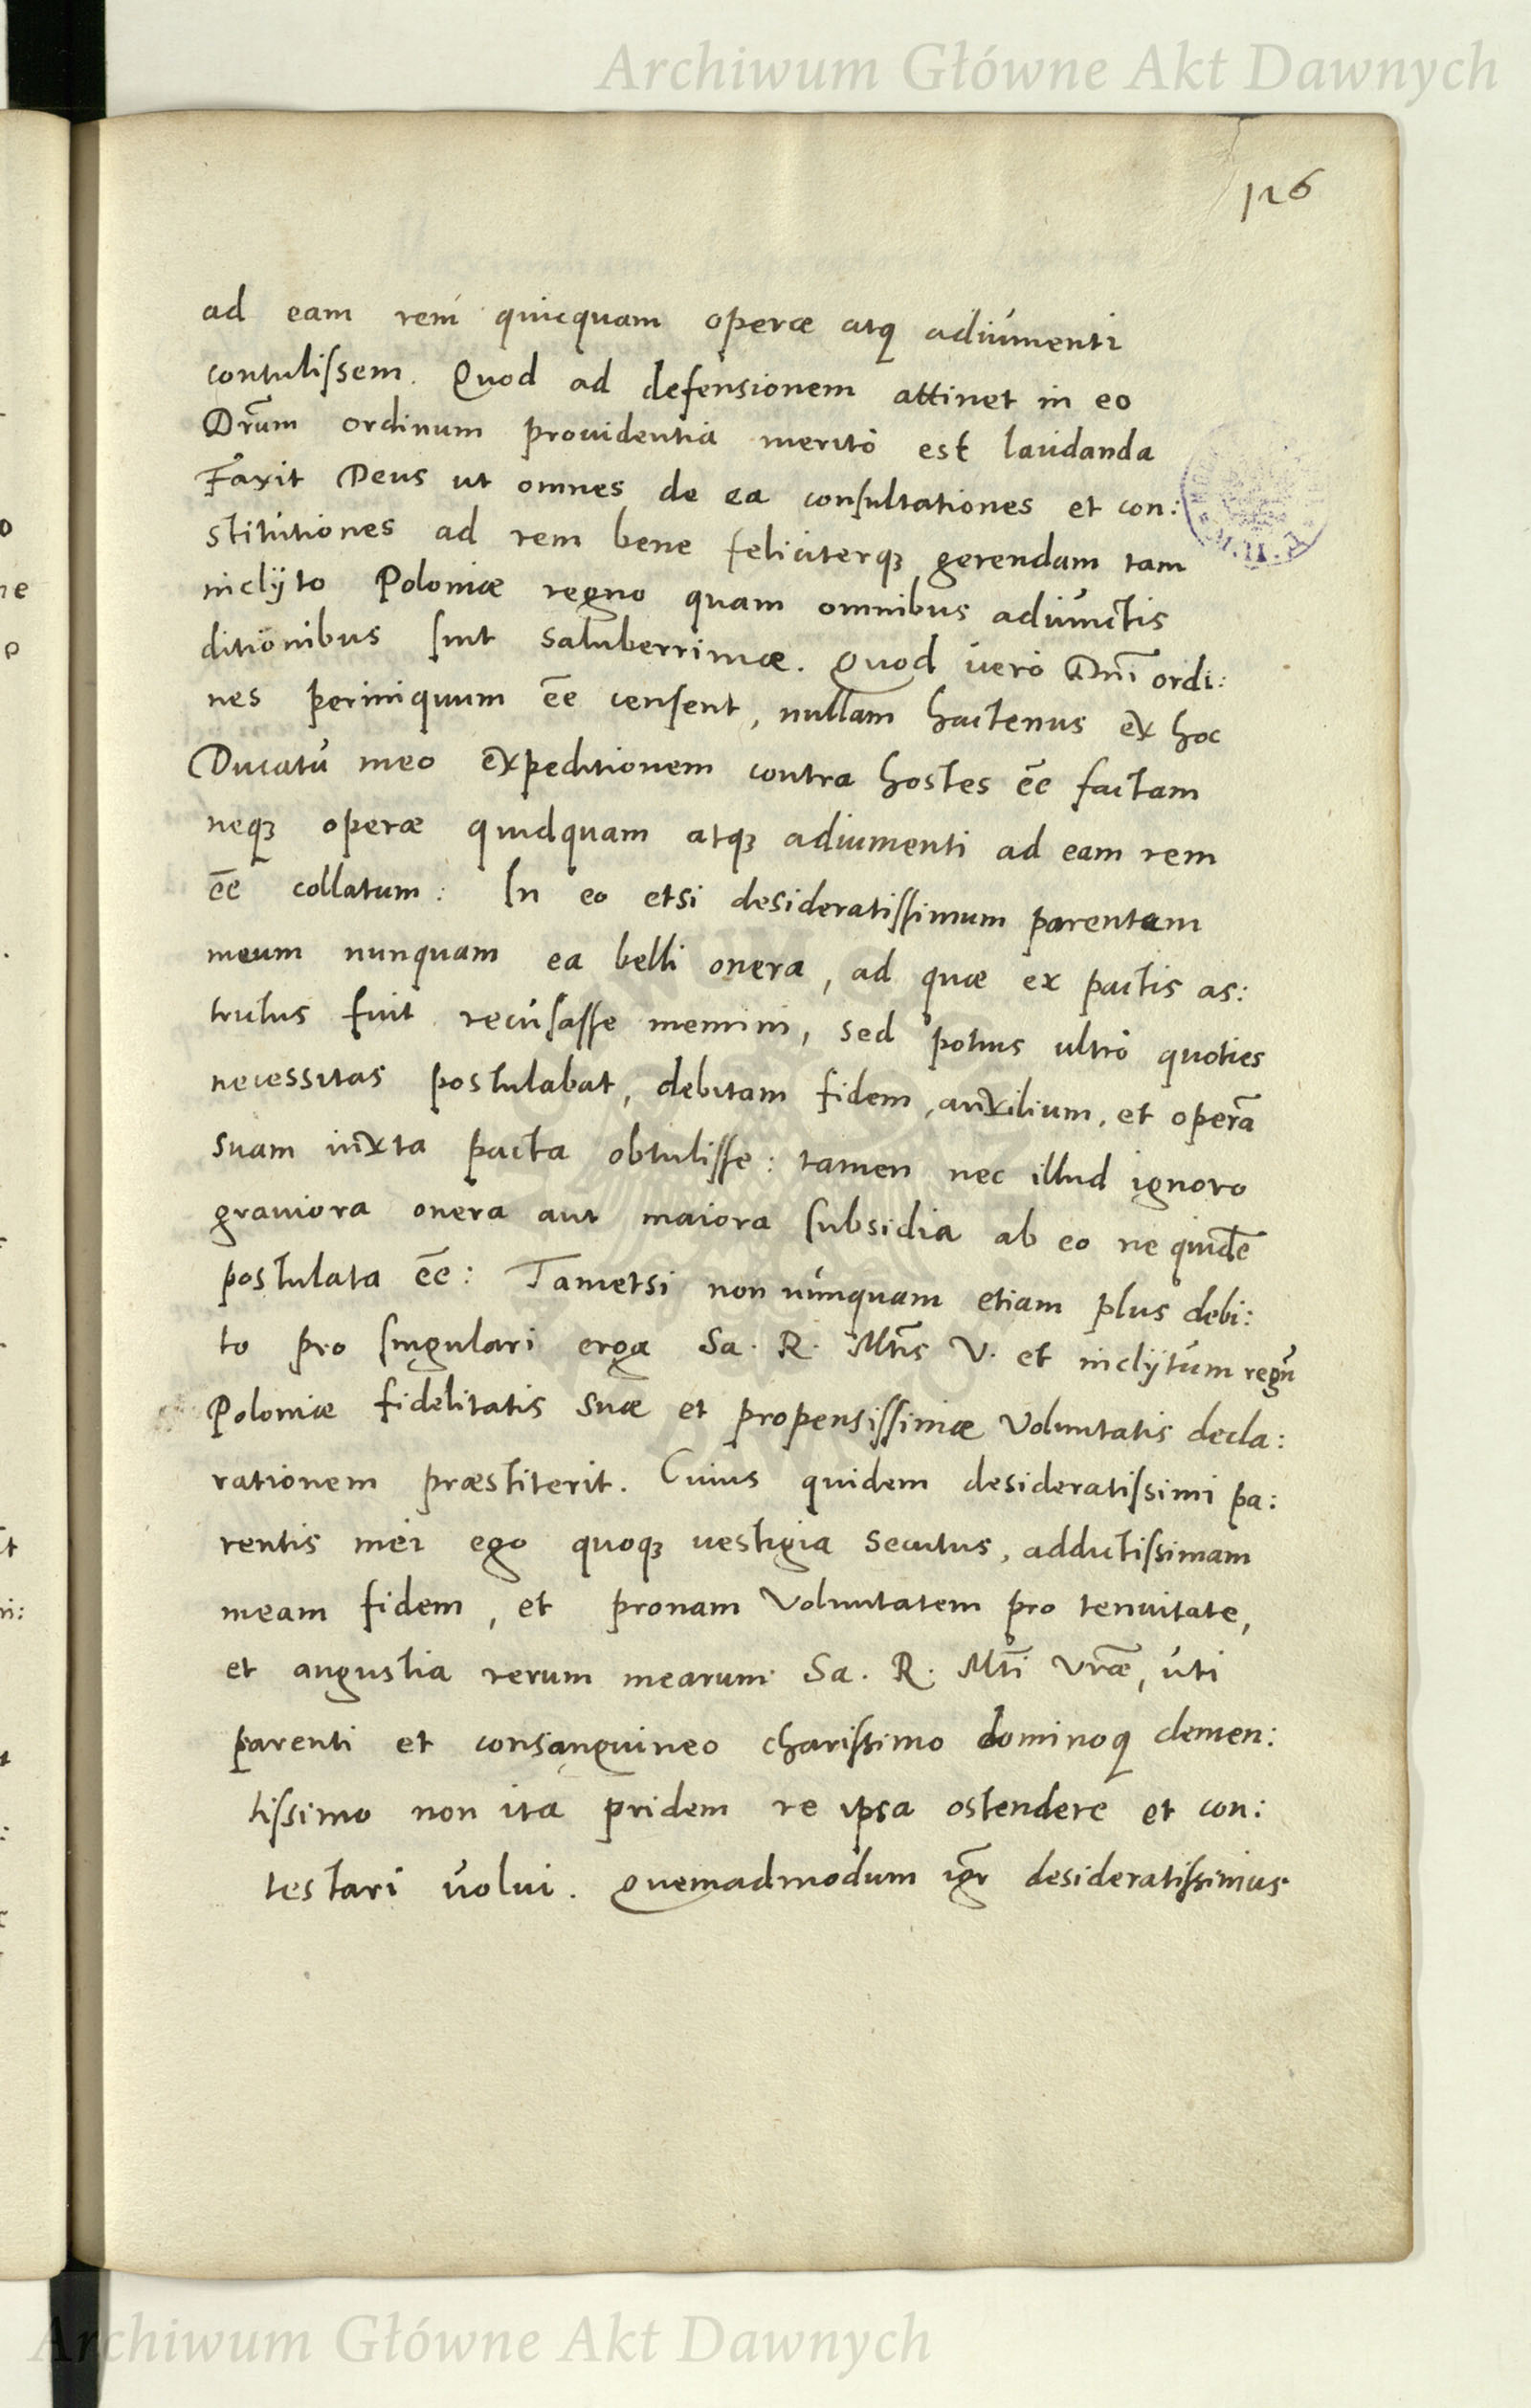 Archiwum Główne Akt Dawnych
126
ad eam rem quicquam operæ atq adiúmenti
contulissem. Quod ad defensionem attinet in eo
Dn̄rum ordinum prouidentia merito est laúdanda
Faxit Deus ut omnes de ea consultationes et con:
stitútiones ad rem bene feliciterqȝ gerendam tam
inclÿto Poloniæ regno quam omnibus adiúnctis
ditionibus sint saluberrimæ. Quod uero Dn̄i ordi:
nes periniquum ēe censent, nullam hactenus ex hoc
Ducatú meo expeditionem contra hostes ēe factam
neqȝ operæ quidquam atqȝ adiumenti ad eam rem
ēe collatum: In eo etsi desideratissimum parentem
meum nunquam ea belli onera, ad quæ ex pactis as:
trictus fuit recúsasse memini, sed potius ultro quoties
necessitas postulabat, debitam fidem, auxilium, et operā
suam iuxta pacta obtulisse: tamen nec illud ignoro
grauiora onera aut maiora subsidia ab eo ne quidē
postulata ēe: Tametsi non núnquam etiam plus debi:
to pro singulari erga Sa. R. Mtīs V. et inclÿtúm regnū
Poloniæ fidelitatis suæ et propensissimæ voluntatis decla:
rationem præstiterit. Cuius quidem desideratissimi pa:
rentis mei ego quoqȝ uestigia secutus, addictissimam
meam fidem, et pronam voluntatem pro tenuitate,
et angustia rerum mearum Sa. R. Mtī Vrǣ, úti
parenti et consanguineo charissimo dominoq clemen:
tissimo non ita pridem re ipsa ostendere et con:
testari uolui. Quemadmodum igr̄ desideratissimus
Archiwum Główne Akt Dawnych